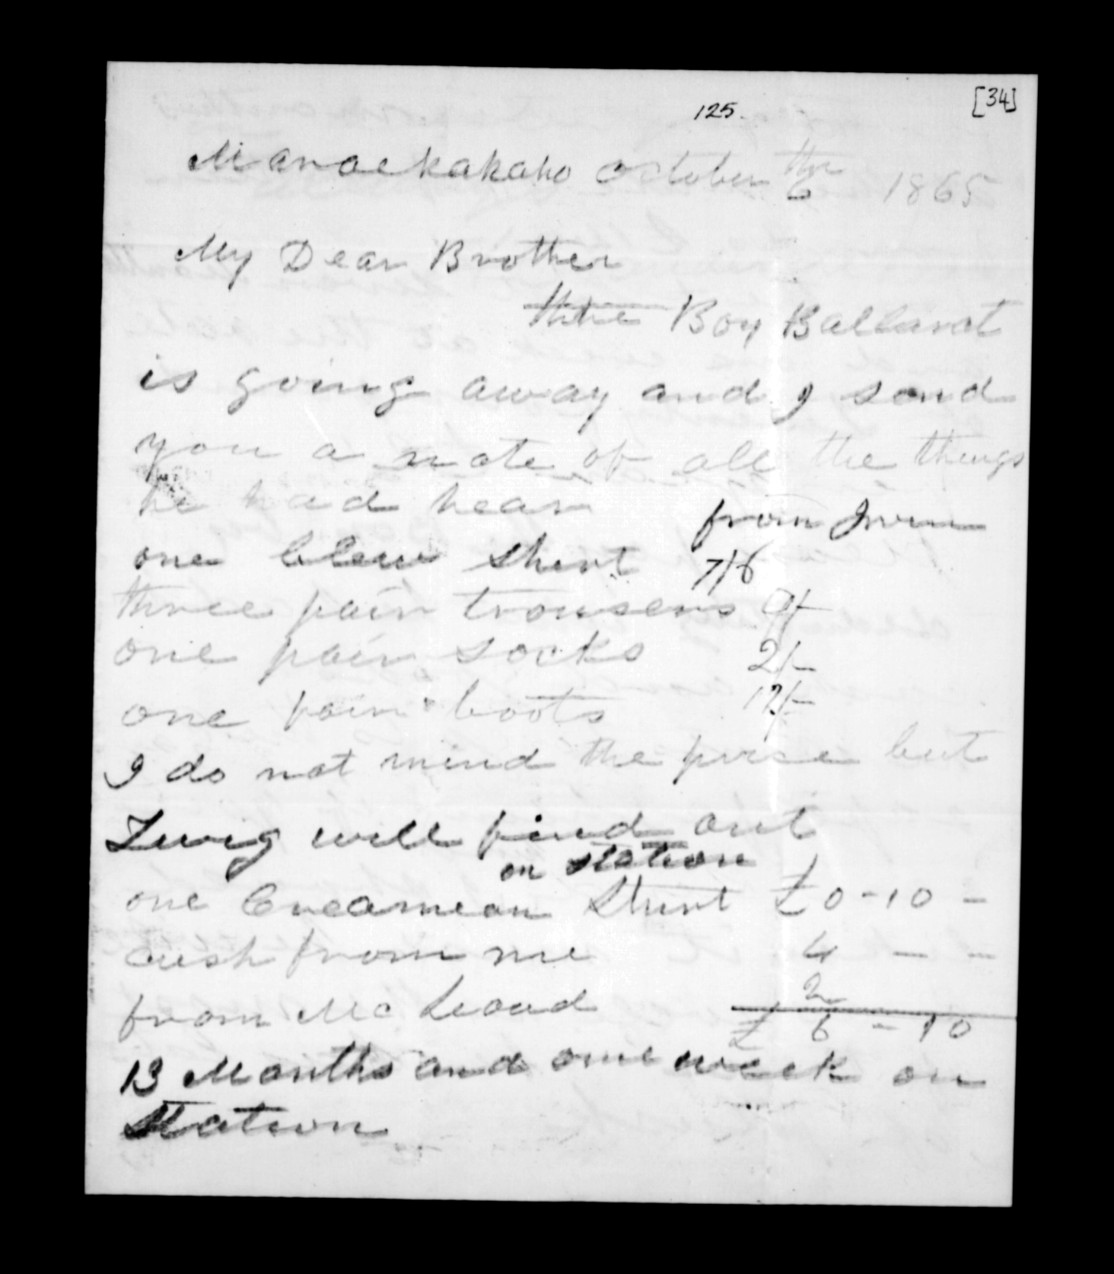 125.
[34]
Maraekakaho October 6th 1865
My Dear Brother
the Boy Ballarat
is going away and I send
you a note of all the things
he had hear
from Irvin
one blew Shirt 7/6
three pair trousers 9/-
one pair socks 2/-
one pair boots 12/-
I do not mind the price but
will find out
on station
one Creamean Shirt £0-10-
cash from me 4 - -
from Mc Leoad 2
£ 6 - 10
13 Months and one week on
Station